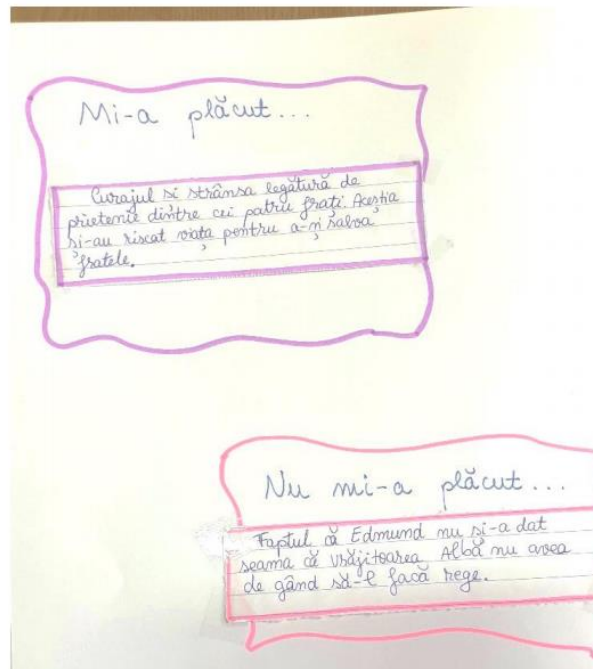 Mi-a plăcut...
Curajul si strânsa legătură de
prietenie dintre cei patru frați. Aceștia
și-au riscat viața pentru a-și salva
fratele.
Nu mi-a plăcut...
Faptul că Edmund nu și-a dat
seama că Vrăjitoarea Albă nu avea
de gând să-l facă rege.